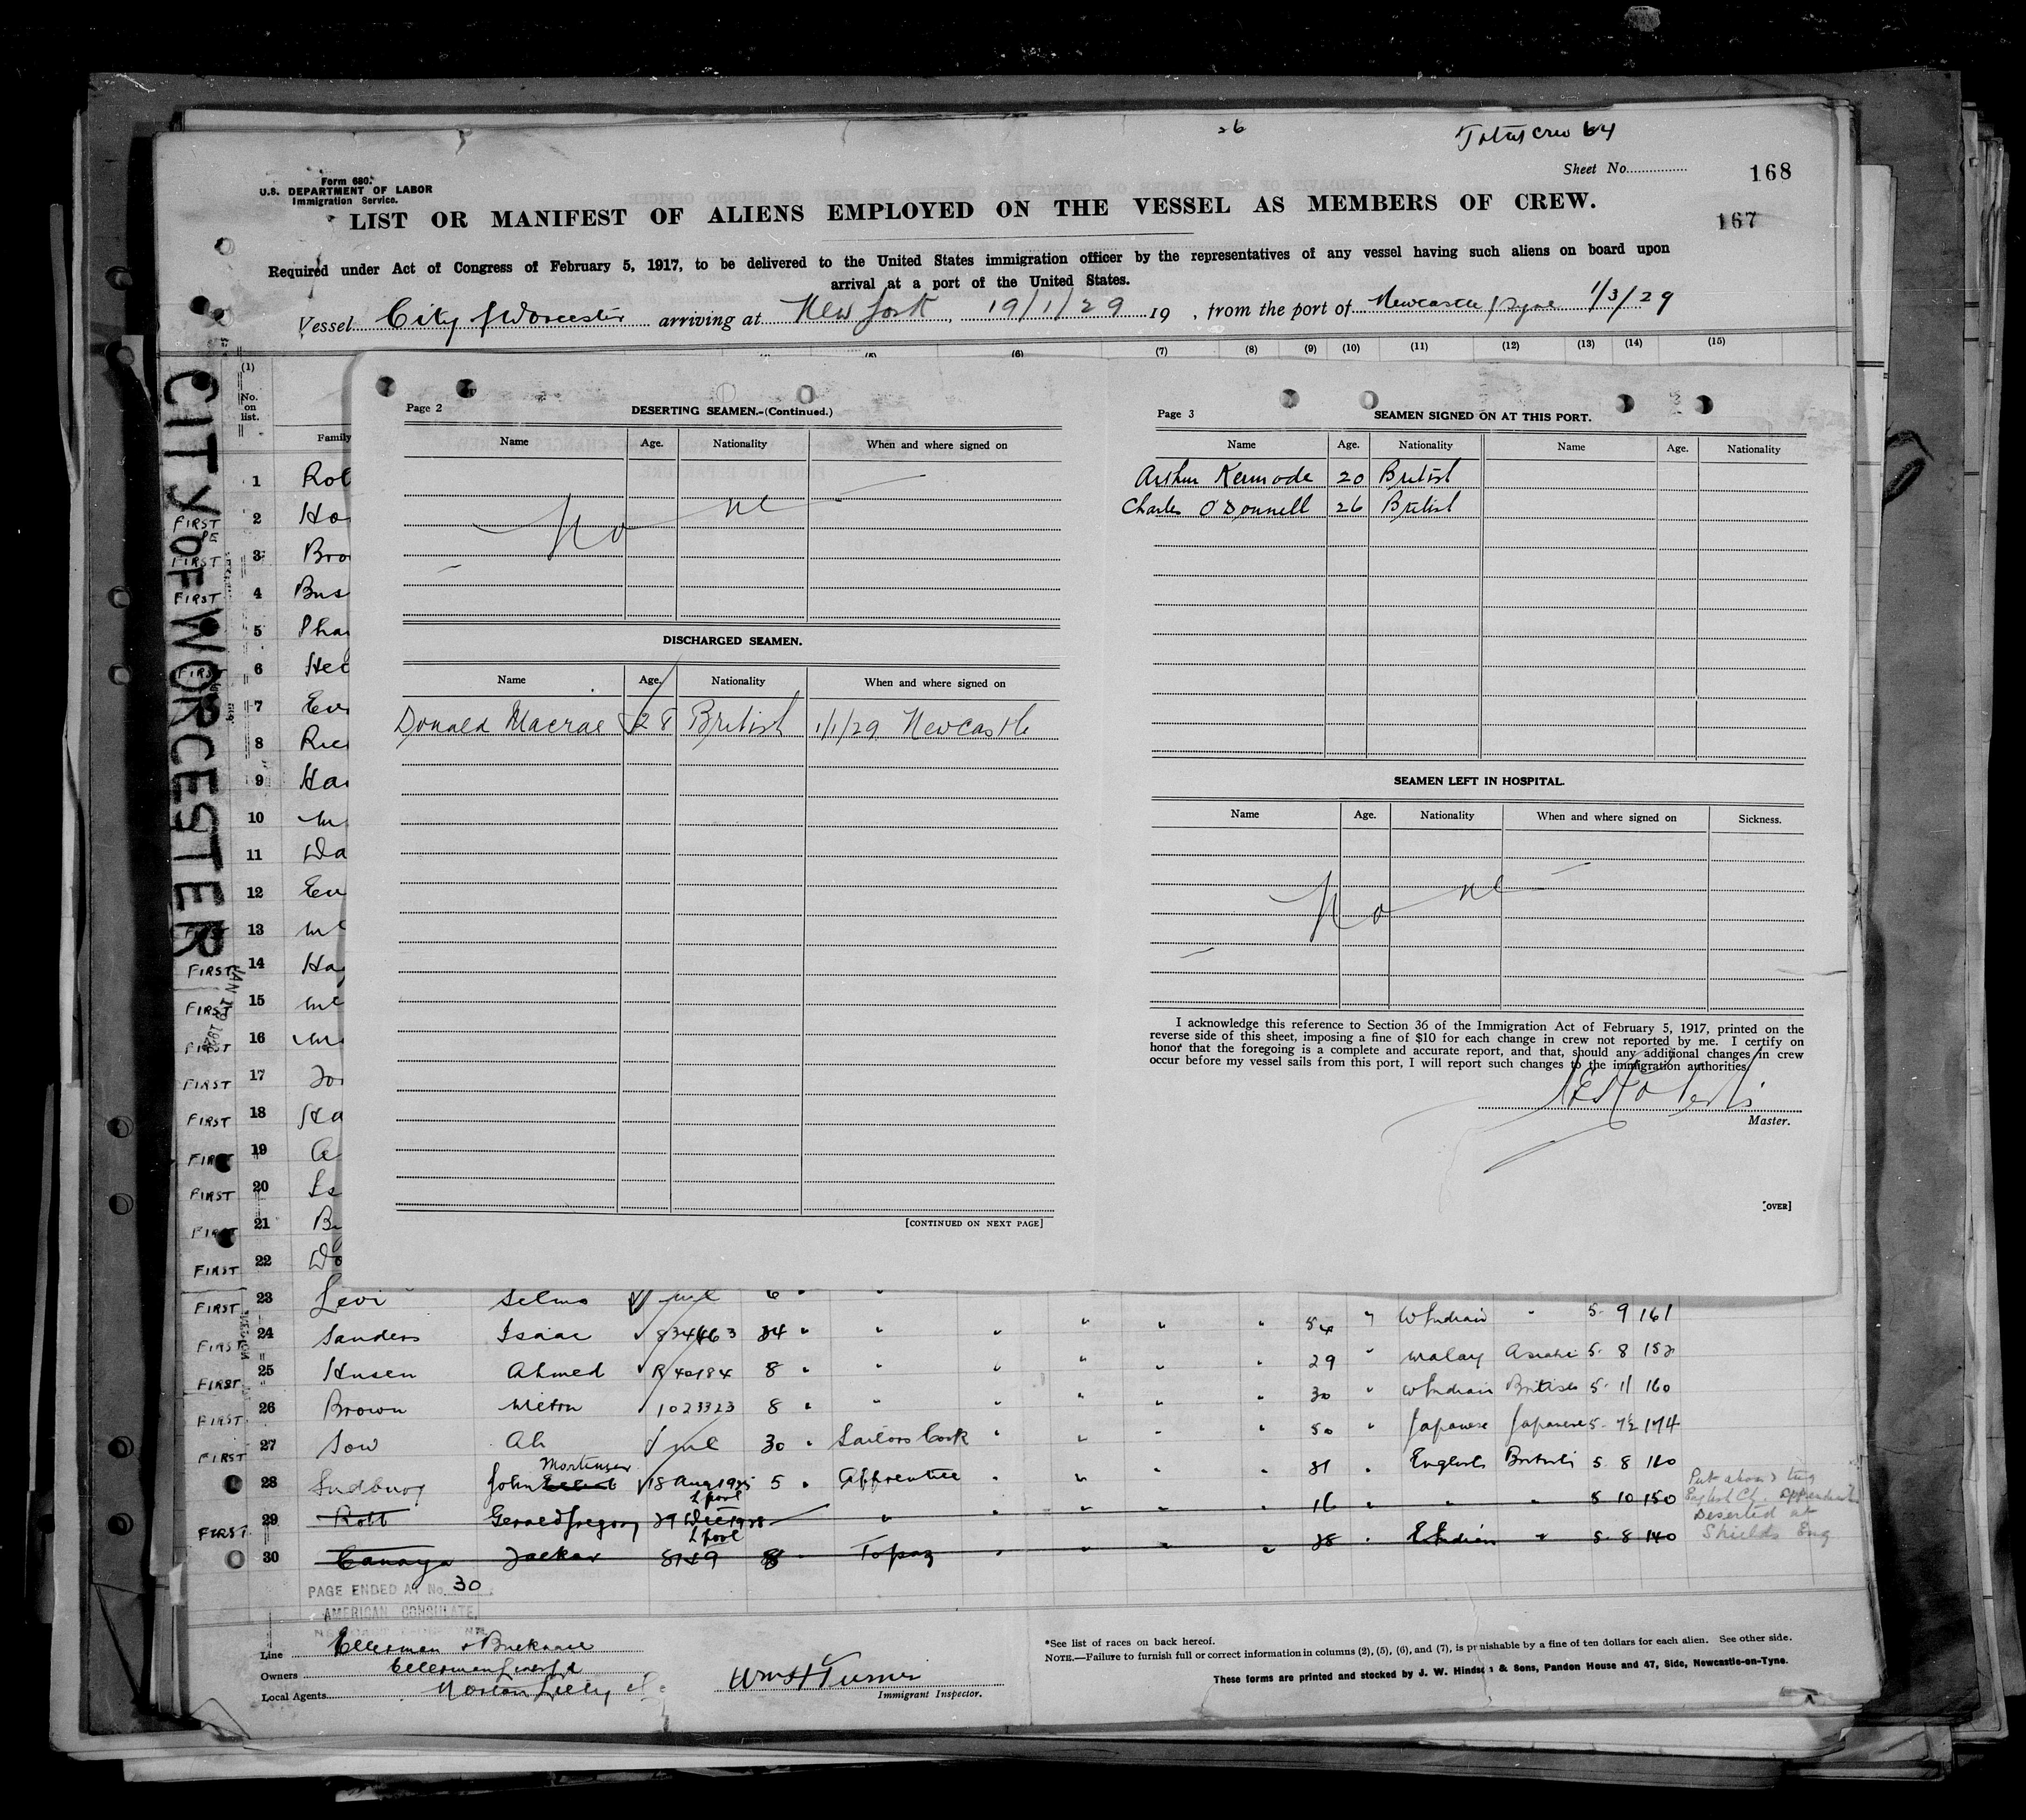 26
Total Crew 64
Sheet No.
168
Form 680.
U.S. DEPARTMENT OF LABOR
Immigration Service.
LIST OR MANIFEST OF ALIENS EMPLOYED ON THE VESSEL AS MEMBERS OF CREW.
167
Required under Act of Congress of February 5, 1917, to be delivered to the United States immigration officer by the representatives of any vessel having such aliens on board upon
arrival at a port of the United States.
Vessel City of Worcester arriving at New York, 19/1/29 19 , from the port of Newcastle 1/3/29
(1) (6) (7) (8) (9) (10) (11) (12) (13) (14) (15)
No. on list.
Family
CITY OF WORCESTER
Page 2 DESERTING SEAMEN.-(Continued.)
Name Age. Nationality When and where signed on
None
DISCHARGED SEAMEN.
Name Age. Nationality When and where signed on
Donald Macrae 28 British 1/1/29 Newcastle
[CONTINUED ON NEXT PAGE]
Page 3 SEAMEN SIGNED ON AT THIS PORT.
Name Age. Nationality Name Age. Nationality
Arthur Kermode 20 British
Charles O'Donnell 26 British
SEAMEN LEFT IN HOSPITAL.
Name Age. Nationality When and where signed on Sickness.
None
I acknowledge this reference to Section 36 of the Immigration Act of February 5, 1917, printed on the
reverse side of this sheet, imposing a fine of $10 for each change in crew not reported by me. I certify on
honor that the foregoing is a complete and accurate report, and that, should any additional changes in crew
occur before my vessel sails from this port, I will report such changes to the immigration authorities.
Master.
[OVER]
1 Rob
FIRST 2 Ho
FIRST 3 Bro
FIRST 4 Bus
5 Pha
FIRST 6
7 Eva
8
9 Har
10
11 Da
12
FIRST 13
FIRST 14
FIRST 15
FIRST 16
FIRST 17
FIRST 18 Ha
FIRST 19
FIRST 20
FIRST 21
FIRST 22
FIRST 23 Levi Selmo nil 6 54 " W Indian " 5 9 161
FIRST 24 Sanders Isaac 834463 24 " " " " " " 29 " Malay 5 8 152
FIRST 25 Husen Ahmed R 40184 8 " " " " " 30 " W Indian British 5 11 160
FIRST 26 Brown 1023323 8 " " " " " 50 " Japanese Japanese 5 7½ 174
FIRST 27 Sow Ah nil 30 " Sailors Cook " " " " English British 5 8 160
28 Sudbury John Mortimer 18 Aug 1925 L'pool 5 " Apprentice " " " " 16 " " " 5 10 150
FIRST 29 Rott Gerald Gregory 29 Dec 1928 L'pool " " " " " 28 " E Indian " 5 8 140
30 8149 8 Topaz
Deserted at
Shields Eng
PAGE ENDED AT No. 30
AMERICAN CONSULATE,
Line Ellerman & Bucknall
Owners
Local Agents
Wm H Turner
Immigrant Inspector.
*See list of races on back hereof.
NOTE.—Failure to furnish full or correct information in columns (2), (5), (6), and (7), is punishable by a fine of ten dollars for each alien. See other side.
These forms are printed and stocked by J. W. Hindson & Sons, Pandon House and 47, Side, Newcastle-on-Tyne.